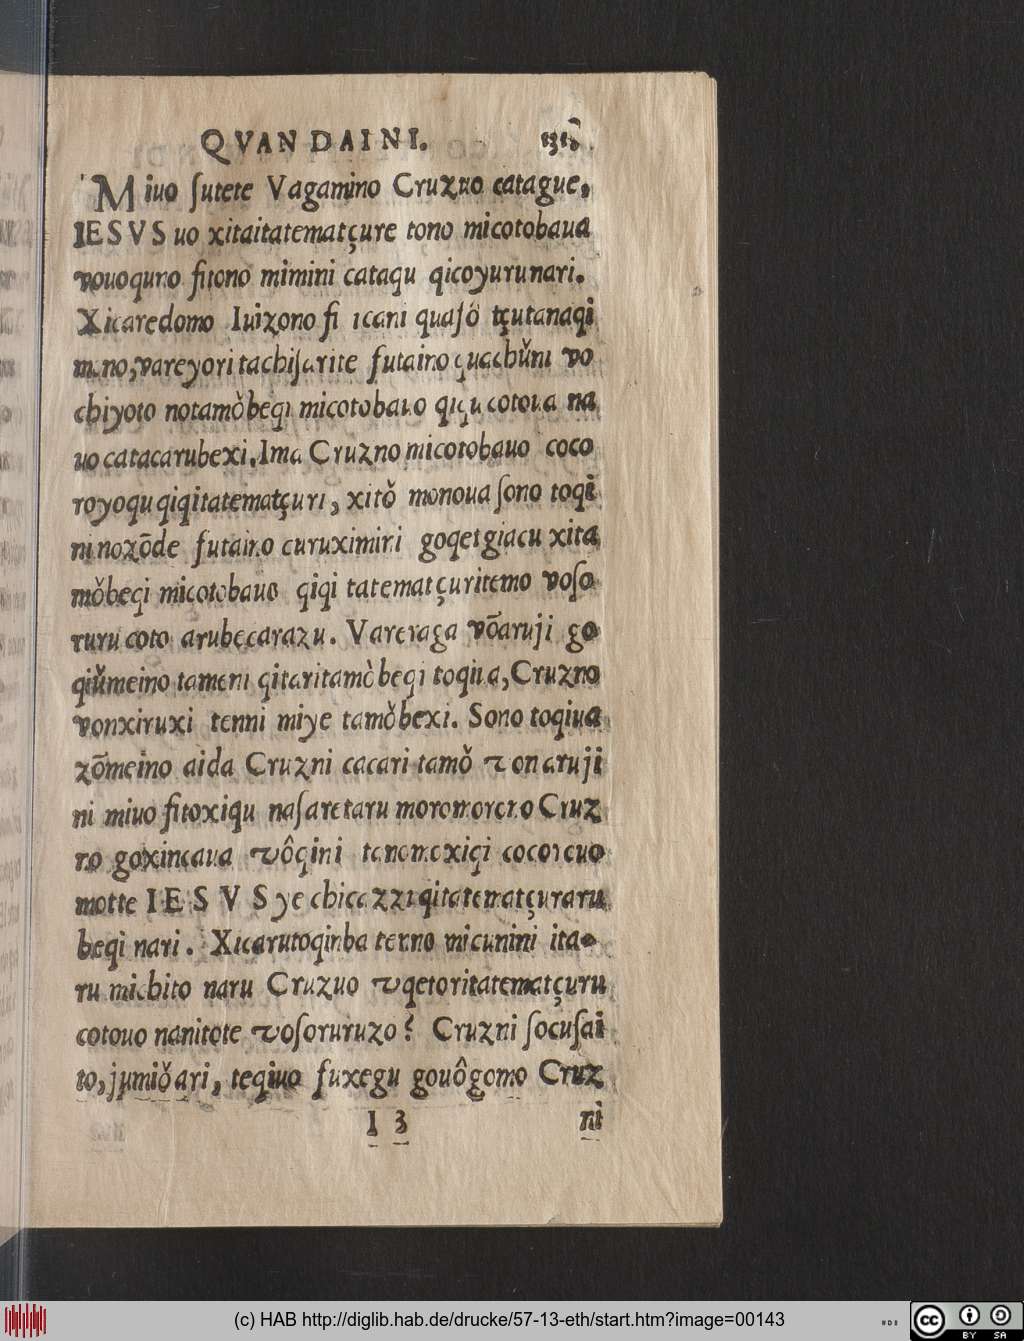 QVAN DAI NI.
Miuo ſutete Vaganino Cruzuo catague,
IESVS uo xitaitatematçure tono micotobaua
vouoquno fitono mimini cataqu qicoyurunari.
Xicaredomo Iuizono fi icani quaſŏ tçutanaqi
mono, vareyori tachiſarite futaino quachŭni vo
chiyoto notamŏbeqi micotobauo qiqu cotoua na
uo catacarubexi, Ima Cruzno micotobauo coco
royoqu qiqitatematçuri, xitŏ monoua ſono toqi
ni nozōde futaino curuximini goqetgiacu xita
mŏbeqi micotobauo qiqi tatematçuritemo voſo
ruru coto arubecarazu. Vareraga vōaruji go
qiŭmeino tameni qitaritamŏ beqi toqiua, Cruzno
vonxiruxi tenni miye tamŏbexi. Sono toqiua
zōmeino aida Cruzni cacari tamŏ von aruji
ni miuo fitoxiqu naſaretaru moromorono Cruz
no goxincaua vôqini tanomoxiqi cocorouo
motte IESVS ye chicazzuqitatematçuraru
beqi nari. Xicarutoqinba tenno micunini ita-
ru michito naru Cruzuo vqetoritatematçuru
cotouo nanitote voſoruruzo? Cruzni ſocuſai
to, jumiŏ ari, teqiuo fuxegu gouôgomo Cruz
I 3 ni
(c) HAB http://diglib.hab.de/drucke/57-13-eth/start.htm?image=00143
cc BY SA